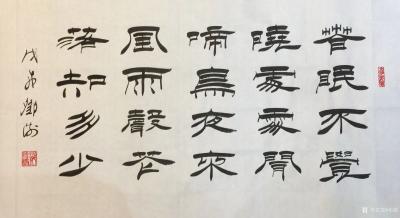 春眠不覺
曉處處聞
啼鳥夜來
風雨聲花
落知多少
戊戌